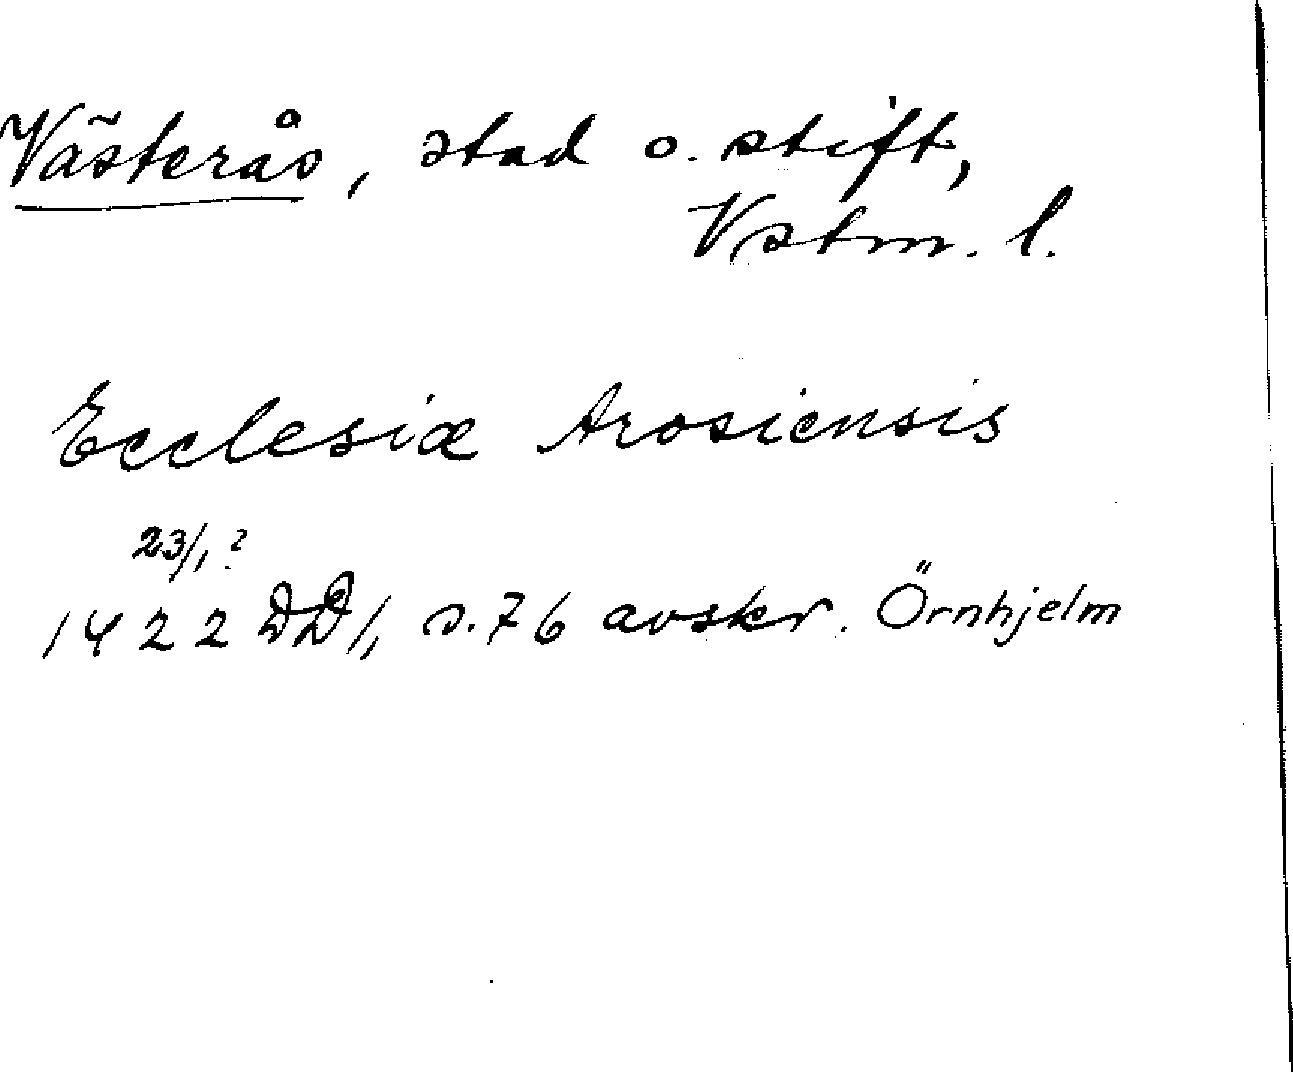 Västerås, stad o. stift,
Vstm. l.
Ecclesiæ Arosiensis
23/1?
1422 DD 1, s. 76 avskr. Örnhjelm